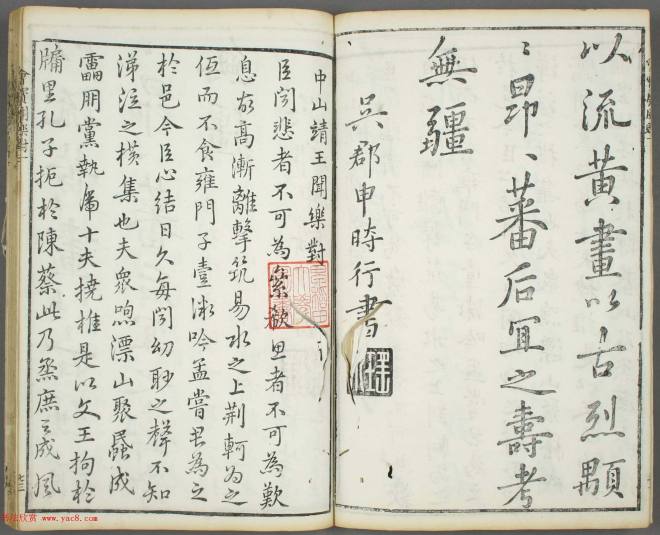 以流黄畫以古烈顒
〻昂〻蕃后冝之壽考
無疆
吳郡申時行書
中山靖王聞樂對
臣闻悲者不可為絫欷思者不可為歎
息故高漸離擊筑易水之上荆軻為之
低而不食雍門子壹微吟孟嘗君為之
於邑今臣心结日久每闻幼眇之聲不知
涕泣之橫集也夫衆喣漂山聚蟁成
靁朋黨執虎十夫撓椎是以文王拘於
牖里孔子扼於陳蔡此乃烝庶之成風
书法欣赏 www.yac8.com